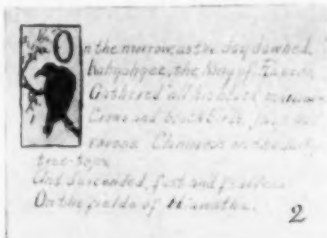 On the morrow as the day dawned,
Kahgahgee, the King of Ravens,
Gathered all his black
Crows and black birds, jays and
ravens, Clamorous on the dusky
tree-tops,
And descended, fast and fearless
On the fields of Hiawatha.
2